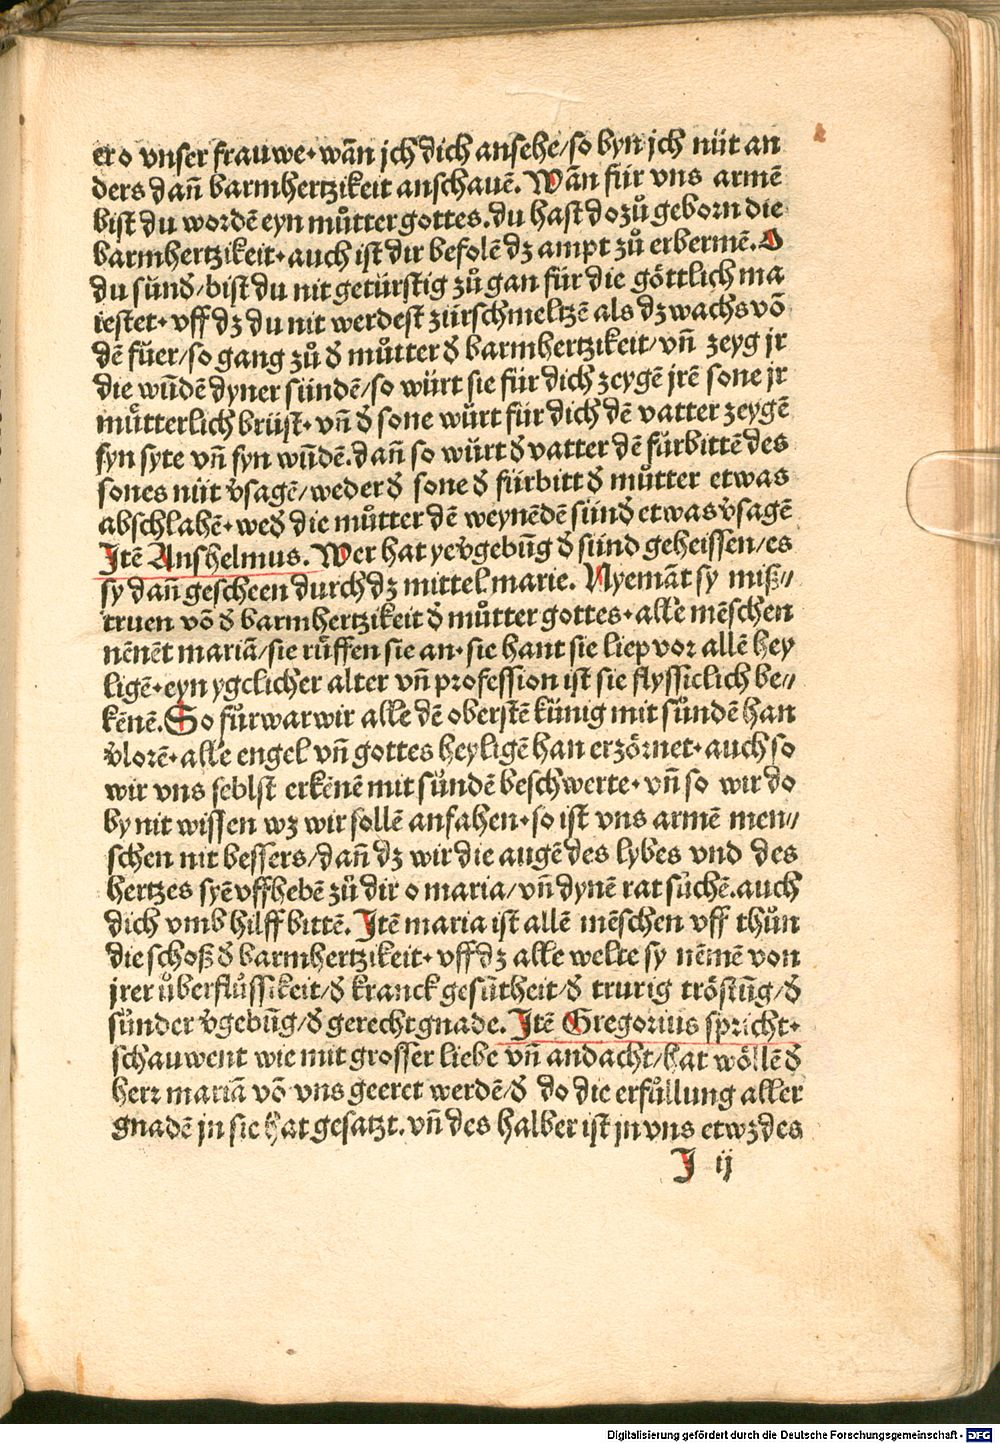 er o vnser frauwe. wañ jch dich ansehe/so byn jch nüt an
ders dañ barmhertzikeit anschauē. Wañ für vns armē
bist du wordē eyn můtter gottes. du hast dozů geborn die
barmhertzikeit. auch ist dir befolē dz ampt zů erbermē. O
du sünđ/bist du nit getürstig zů gan für die göttlich ma
iestet. vff dz du nit werdest zürschmeltzē als dz wachs võ
dē füer/so gang zů đ můtter đ barmhertzikeit/vñ zeyg jr
die wũdē dyner sündē/so würt sie für dich zeygē jrē sone jr
mütterlich brüst. vñ đ sone würt für dich dē vatter zeygē
syn syte vñ syn wũdē. dañ so würt đ vatter dē fürbittē des
sones nüt v̉sagē/weder đ sone đ fürbitt đ můtter etwas
abschlahē. weđ die můtter dē weynēdē sünđ etwas v̉sagē
Jtē Anshelmus. Wer hat ye v̉gebũg đ sünd geheissen/es
sy dañ gescheen durch dz mittel marie. Nyemãt sy miß//
truen võ đ barmhertzikeit đ můtter gottes. alle mēschen
nēnēt mariã/sie rüffen sie an. sie hant sie liep vor allē hey
ligē. eyn ygclicher alter vñ profession ist sie flyssiclich be//
kēnē. So fürwar wir alle dē oberstē künig mit sündē han
v̉lorē. alle engel vñ gottes heyligē han erzörnet. auch so
wir vns seblst erkēnē mit sündē beschwerte. vñ so wir do
by nit wissen wz wir sollē anfahen. so ist vns armē men//
schen nit bessers/dañ dz wir die augē des lybes vnd des
hertzes syē vffhebē zů dir o maria/vñ dynē rat sůchē. auch
dich vmb hilff bittē. Jtē maria ist allē mēschen vff thůn
die schoß đ barmhertzikeit. vff dz alle welte sy nēmē von
jrer überflüssikeit/đ kranck gesũtheit/đ trurig tröstũg/đ
sünder v̉gebũg/đ gerecht gnade. Jtē Gregorius spricht.
schauwent wie mit grosser liebe vñ andacht/hat wöllē đ
herr mariã võ vns geeret werdē/đ do die erfüllung aller
gnadē jn sie hat gesatzt. vñ des halber ist jn vns etwz des
J ij
Digitalisierung gefördert durch die Deutsche Forschungsgemeinschaft - DFG